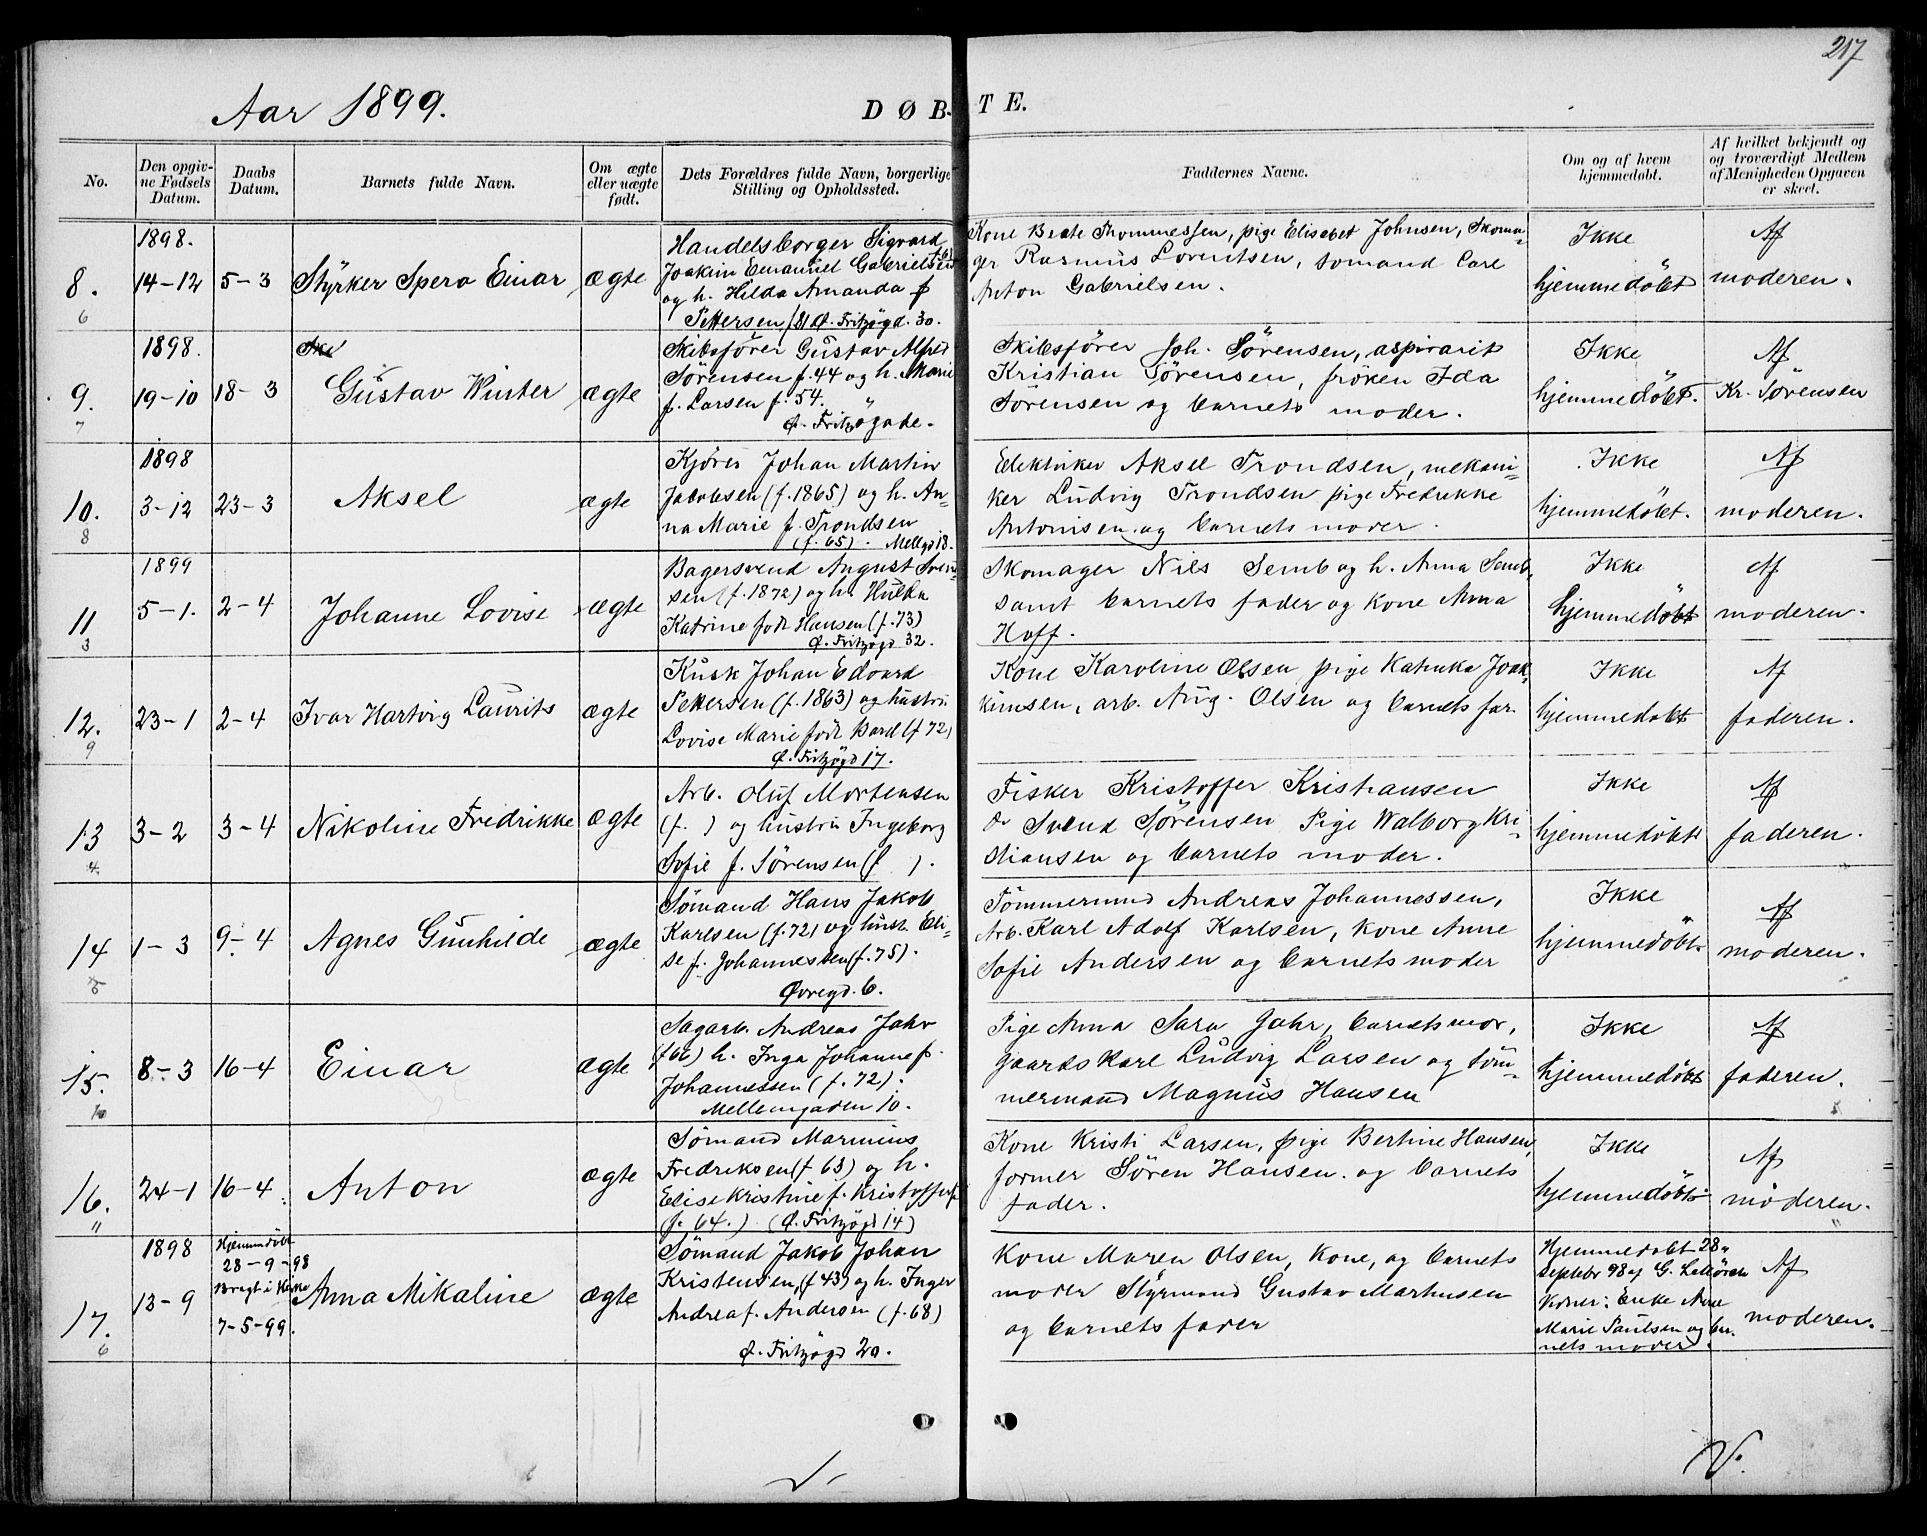 217
Aar 1899.
DØBTE.
No.
Den opgivne Fødsels Datum.
Daabs Datum.
Barnets fulde Navn.
Om ægte eller uægte født.
Dets Forældres fulde Navn, borgerlige Stilling og Opholdssted.
Faddernes Navne.
Om og af hvem hjemmedøbt.
Af hvilket bekjendt og og troværdigt Medlem af Menigheden Opgaven er skeet.
8.
6
1898.
14-12
5-3
Styrker Spero Einar
ægte
Handelsborger Sigvard
Joakim Emanuel Gabrielsen
og h. Hilda Amanda f
Pettersen Ø. Fritzøgd. 30.
Kone Beate Thommessen, pige Elisabet Johnsen, Skoma-
ger Rasmus Lorentsen, sømand Carl
Anton Gabrielsen.
Ikke
hjemmedøbt
Af
moderen.
9.
7
1898.
19-10
18-3
Gustav Winter
ægte
Skibsfører Gustav Alfred
Sørensen f. 44 og h. Marie
f. Larsen f. 54.
Ø. Fritzøgade.
Skibsfører Joh. Sørensen, aspirant
Kristian Sørensen, frøken Ida
Sørensen og barnets moder.
Ikke
hjemmedøbt.
Af
Kr. Sørensen
10.
8
1898
3-12
23-3
Aksel
ægte
Kjører Johan Martin
Jakobsen (f. 1865) og h. An-
na Marie f. Trondsen
(f. 65). Mellgd 18.
Elektriker Aksel Trondsen, mekani-
ker Ludvig Trondsen pige Fredrikke
Antonisen og barnets moder.
Ikke
hjemmedøbt.
Af
moderen.
11
3
1899
5-1.
2-4
Johanne Lovise
ægte
Bagersvend August Sven-
sen (f. 1872) og h. Hulda
Katrine født Hansen (f. 73)
Ø. Fritzøgd 32.
Skomager Nils Semb og h. Anna Semb,
samt barnets fader og Kone Anna
Hoff.
Ikke
hjemmedøbt
Af
moderen.
12.
9
23-1
2-4
Ivar Hartvig Laurits
ægte
Kusk Johan Edvard
Pettersen (f. 1863) og hustru
Lovise Marie født Bard (f 72)
Ø. Fritzøgd 17.
Kone Karoline Olsen, pige Katinka Joak-
kimsen, arb. Aug. Olsen og barnets far.
Ikke
hjemmedøbt
Af
faderen.
13
4
3-2
3-4
Nikoline Fredrikke
ægte
Arb. Oluf Mortensen
(f. ) og hustru Ingeborg
Sofie f. Sørensen (f ).
Fisker Kristoffer Kristiansen
Svend Sørensen Pige Walborg Kri-
stiansen og barnets moder.
Ikke
hjemmedøbt
Af
faderen.
14
5
1-3
9-4
Agnes Gunhilde
ægte
Sømand Hans Jakob
Karlsen (f. 72) og hust. Eli-
se f. Johannessen (f. 75).
Øvregd. 6.
Tømmermnd Andreas Johannessen,
Arb. Karl Adolf Karlsen, Kone Anne
Sofie Andersen og barnets moder
Ikke
hjemmedøbt
Af
moderen.
15.
10
8-3
16-4
Einar
ægte
Sagarb. Andreas Jahr
(f 66) h. Inga Johanne f.
Johannessen (f. 72).
Mellemgaden 10.
Pige Anna Sara Jahr, barnets mor,
gaardskarl Ludvig Larsen og Tøm-
mermand Magnus Hansen
Ikke
hjemmedøbt
Af
faderen.
16.
11
24-1
16-4.
Anton
ægte
Sømand Marinius
Fredriksen (f. 63) og h.
Elise Kristine f. Kristoffersf
(f. 64.) (Ø. Fritzøgd 14)
Kone Kristi Larsen, pige Bertine Hansen,
former Søren Hansen. og barnets
fader.
Ikke
hjemmedøbt
Af
moderen.
17.
6
1898
13-9
Hjemmdøbt
28-9-98
Bragt i Kirke
7-5-99.
Anna Mikaline
ægte
Sømand Jakob Johan
Kristensen, (f 43) og h. Inger
Andrea f. Andersen (f. 68)
Ø. Fritzøgd 20.
Kone Maren Olsen, Kone, og barnets
moder Styrmand Gustav Marhusen
og barnets fader
Hjemmedøbt 28.
Septebr 98 af G.
Vidner: Enke Anne
Marie Paulsen og bar-
nets moder.
Af
moderen.